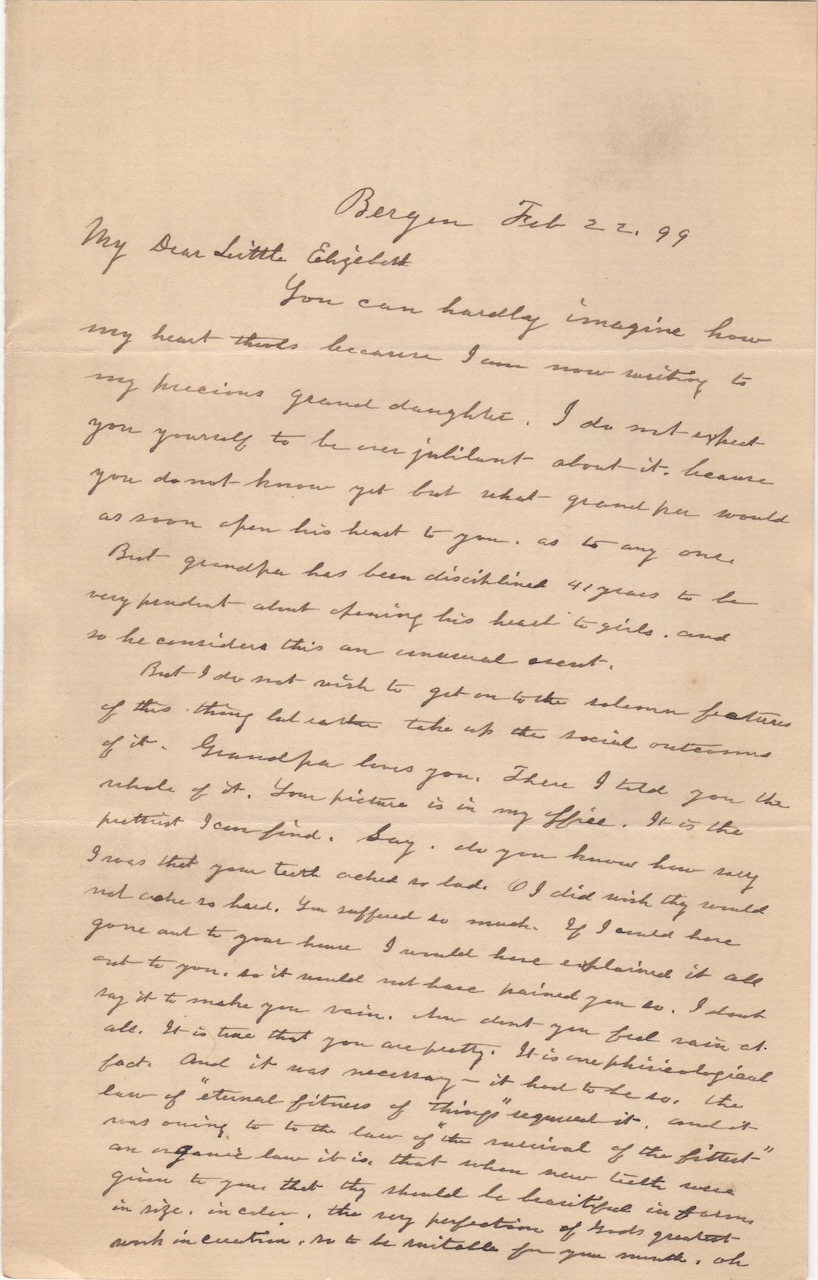 Bergen Feb 22. 99
My Dear Little Elizabeth
You can hardly imagine how
my heart because I am now writing to
my precious grand daughter. I do not expect
you yourself to be over jubilant about it. because
you do not know yet but what grand pa would
as soon open his heart to you. as to any one.
But grandpa has been disciplined 41 years to be
very prudent about opening his heart to girls. and
so he considers this an unusual event.
But I do not wish to get on to the solemn features
of this thing but rather take up the social outcomes
of it. Grandpa loves you. There I told you the
whole of it. Your picture is in my office. It is the
prettiest I can find. Say. do you know how sorry
I was that your teeth ached so bad. O I did wish they would
not ache so hard. You suffered so much. If I could have
gone out to your house I would have explained it all
out to you. so it would not have pained you so. I dont
say it to make you vain. Now dont you feel vain at
all. It is true that you are pretty. It is one phisieological
fact. And it was necessary – it had to be so. the
law of "eternal fitness of things" required it. and it
was owing to to the law of "the survival of the fittest"
an organic law it is. that when new teeth were
given to you. that they should be beautiful in form
in size. in color. the very perfection of Gods greatest
work in creation. so to be suitable for your mouth. oh